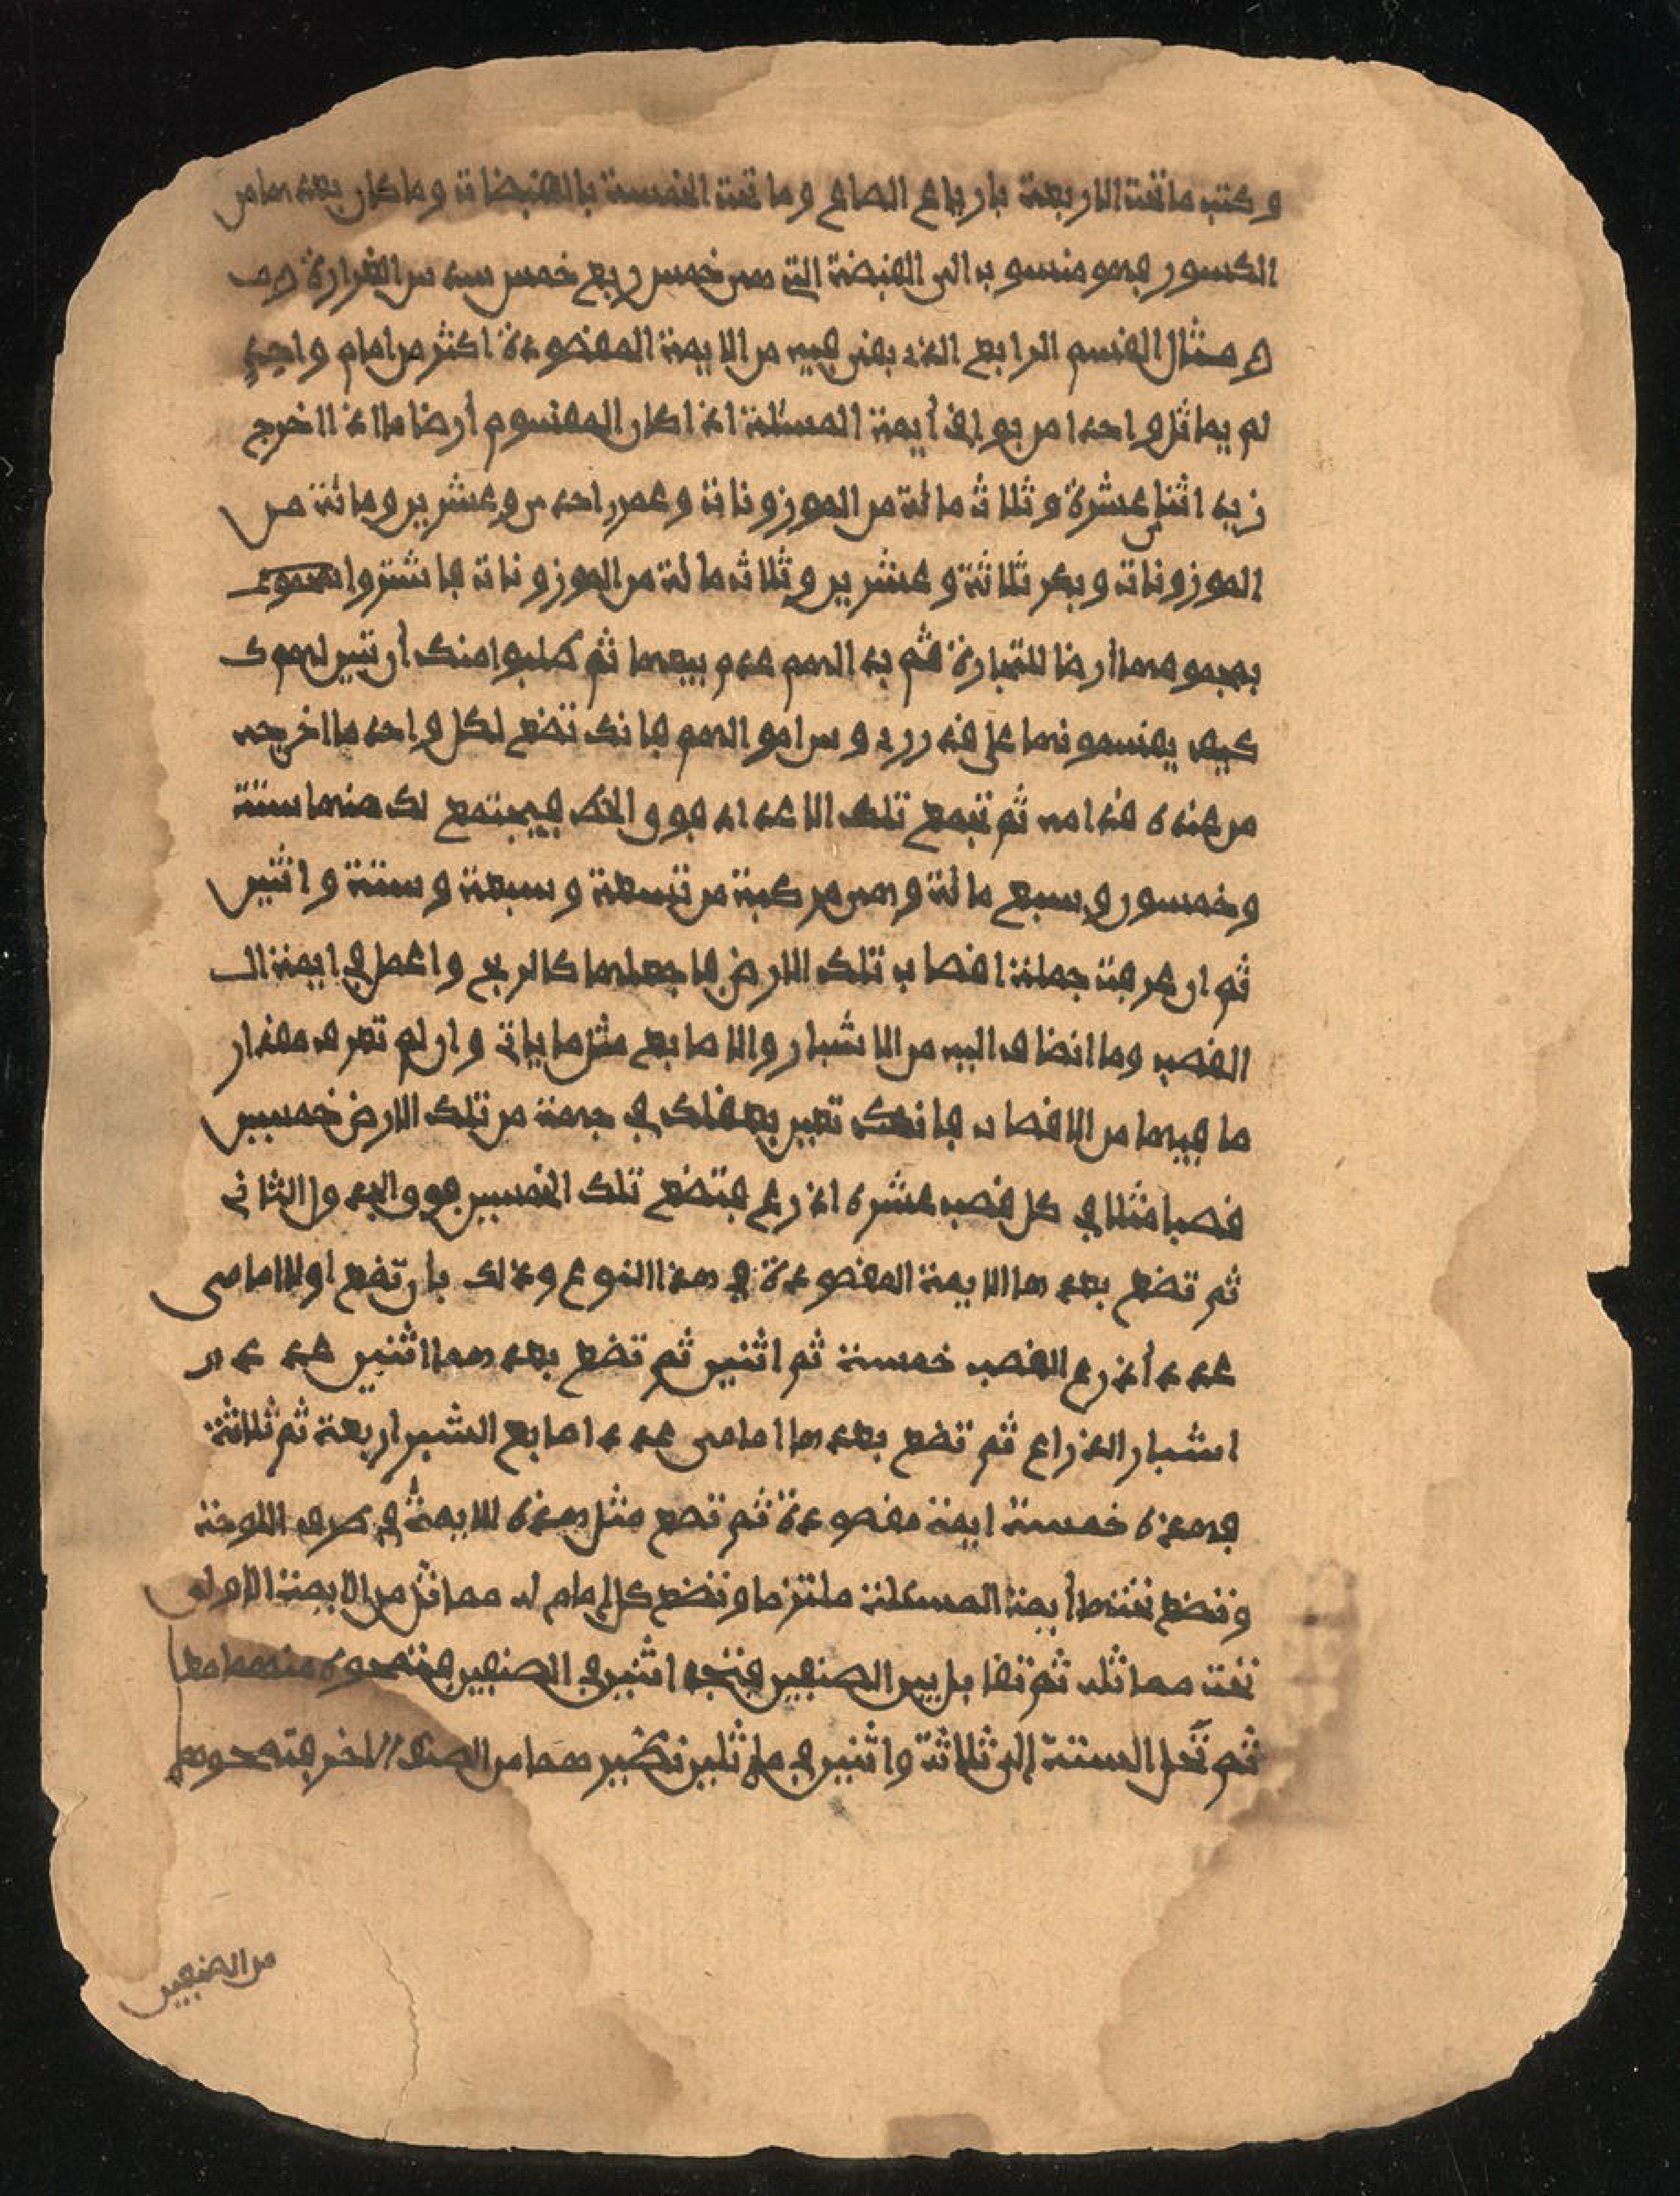 وكتب ما تحت الاربعة بارباع الصاع وما تحت الخمسة بالقبضات وما كان بعدهما من
الكسور فهو منسوب الى القبضة التي هي خمس ربع خمس سدس الغرارة
ومثال القسم الرابع الذي بقي فيه من الايمة المقصودة اكثر من امام واحد
لم يماثل واحدا من بواقي أيمة المسئلة اذا كان المقسوم أرضا ما اذا اخرج
زيد اثني عشرة وثلاث مائة من الموزونات وعمر احدى وعشرين ومائة من
الموزونات وبكر ثلاثة وعشرين وثلاث مائة من الموزونات فاشتروا
بمجموعها أرضا للتجارة ثم بدا لهم عدم بيعها ثم طلبوا منك أن تبين لهم
كيف يقسمونها على قدر رءوس اموالهم فانك تضع لكل واحد ما اخرجه
من عنده قدامه ثم تجمع تلك الاعداد فوق الخط فيجتمع لك منها ستة
وخمسون وسبع مائة وهي مركبة من تسعة وسبعة وستة واثنين
ثم ان عرفت جملة اقصاب تلك الارض فاجعلها كالربح واعمل في ايمة
القصب وما انضاف اليه من الاشبار والاصابع مثل ما ياتي وان لم تعرف مقدار
ما فيها من الاقصاب فانك تعبر بعقلك في جهة من تلك الارض خمسين
قصبا مثلا في كل قصب عشرة اذرع فتضع تلك الخمسين فوق اليد والثاني
ثم تضع بعدها الايمة المقصودة في هذا النوع وذلك بان تضع اولا امامي
عدد أذرع القصب خمسة ثم اثنين ثم تضع بعدهما اثنين عدد
اشبار الذراع ثم تضع بعدها امامي عدد اصابع الشبر اربعة ثم ثلاثة
فهذه خمسة ايمة مقصودة ثم تضع مثل هذه الايمة في طرف اللوحة
وتضع تحتها أيمة المسئلة ملتزما وتضع كل إمام له مماثل من الايمة الاولى
تحت مماثله ثم تقابل بين الصنفين فتجد اثنين في الصنفين فتمحوه منهما معا
ثم تحل الستة إلى ثلاثة واثنين في مماثلين نظيرهما من الصنف الاخر فتمحوهما
من الصنفين